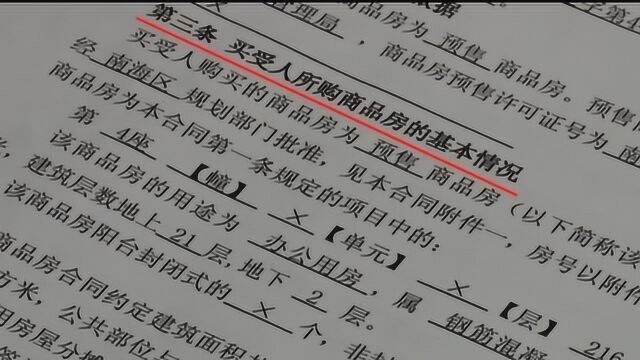 依据
× 管理局 字第
为 预售 商品房。预售
，商品房预售许可证号为 南
第三条 买受人所购商品房的基本情况
买受人购买的商品房为 预售 商品房（以下简称该
经 南海区 规划部门批准，见本合同附件一，房号以附件
商品房为本合同第一条规定的项目中的：
第 4座 【幢】 × 【单元】 × 【层】 216
该商品房的用途为 办公用房，属 钢筋混凝
建筑层数地上 21 层，地下 2 层。
该商品房阳台封闭式的 × 个，非封
商品房合同约定建筑面积共
方米，公共部位与
用房屋分摊